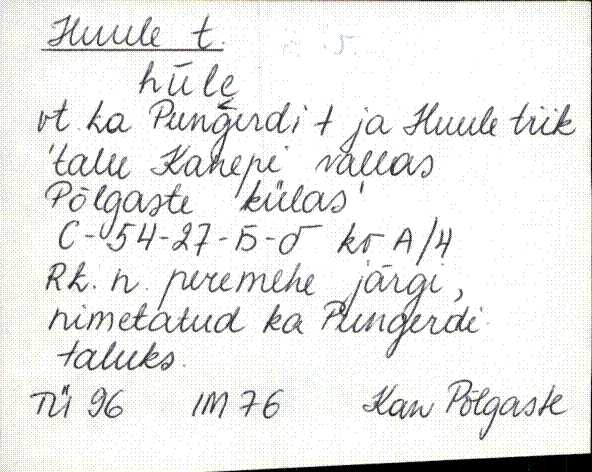 Huule t.
hüle
vt. ka Pungerdi t ja Huule tiik
'talu Kanepi vallas
Põlgaste külas'
C-54-27-Б-б kv A/4
Rk. n. peremehe järgi,
nimetatud ka Pungerdi
taluks.
TÜ 96 IM 76 Kan Põlgaste